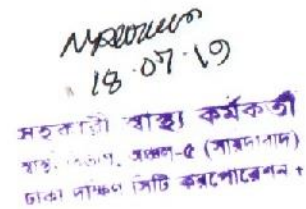 18.07.19
সহকারী স্বাস্থ্য কর্মকর্তা
স্বাস্থ্য বিভাগ, অঞ্চল-৫ (সায়দাবাদ)
ঢাকা দক্ষিণ সিটি করপোরেশন